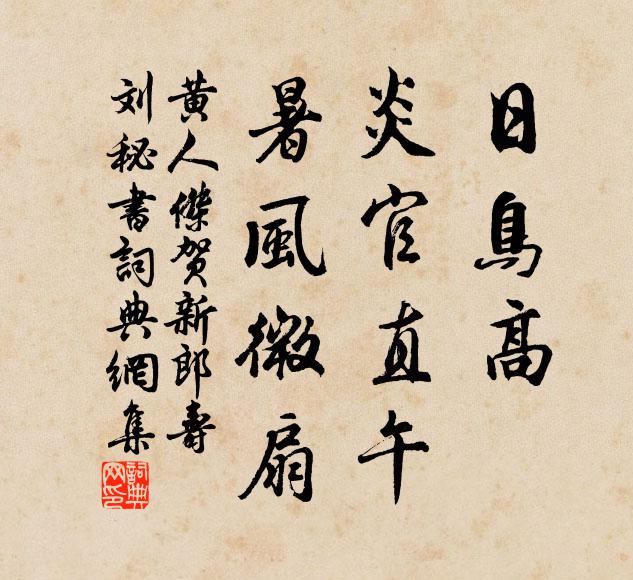 日烏高
炎官直午
暑風微扇
黄人傑賀新郎壽
刘秘書詞典網集
詞典
网印